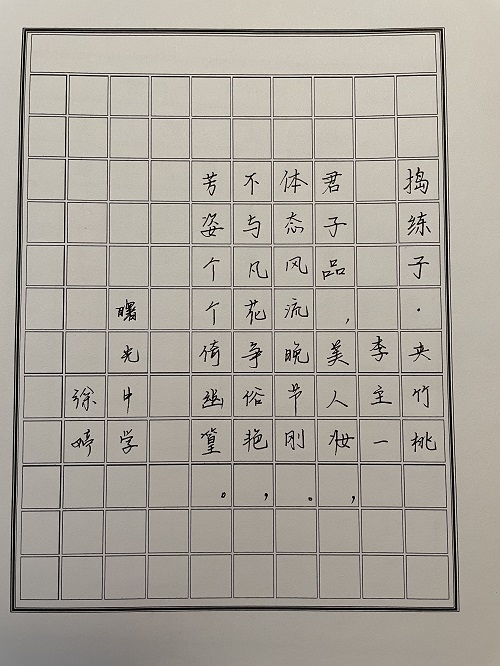 捣练子·夹竹桃
李主一
君子品，美人妆，
体态风流晚节刚。
不与凡花争俗艳，
芳姿个个倚幽篁。
曙光中学
徐婷